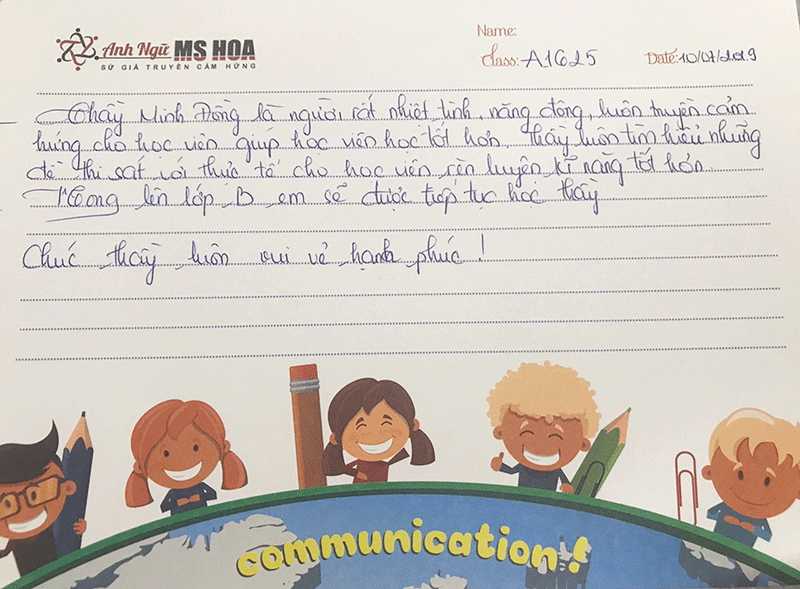 Anh Ngữ MS HOA
SỨ GIẢ TRUYỀN CẢM HỨNG
Name:
Class: A1625
Date: 10/07/2019
Thầy Minh Đồng là người rất nhiệt tình, năng động, luôn truyền cảm
hứng cho học viên giúp học viên học tốt hơn. Thầy luôn tìm hiểu những
đề thi sát với thực tế cho học viên rèn luyện kĩ năng tốt hơn.
Mong lên lớp B em sẽ được tiếp tục học thầy
Chúc thầy luôn vui vẻ hạnh phúc!
communication!